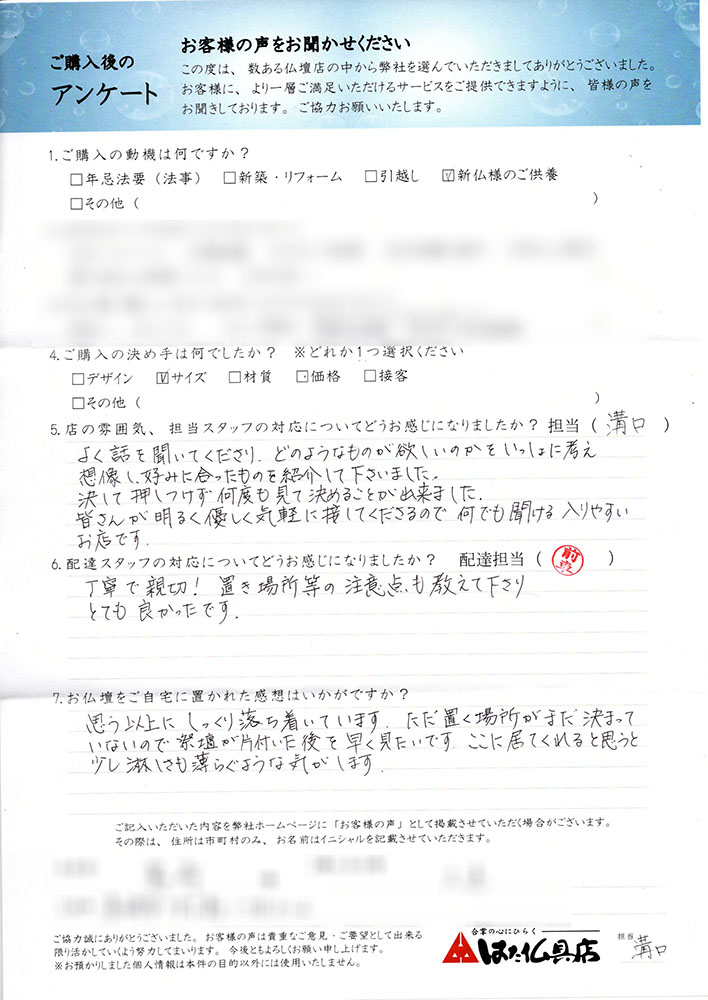 ご購入後の
アンケート
お客様の声をお聞かせください
この度は、数ある仏壇店の中から弊社を選んでいただきましてありがとうございました。
お客様に、より一層ご満足いただけるサービスをご提供できますように、皆様の声を
お聞きしております。ご協力お願いいたします。
1.ご購入の動機は何ですか?
□年忌法要(法事) □新築・リフォーム □引越し ☑新仏様のご供養
□その他( )
4.ご購入の決め手は何でしたか? ※どれか1つ選択ください
□デザイン ☑サイズ □材質 □価格 □接客
□その他( )
5.店の雰囲気、担当スタッフの対応についてどうお感じになりましたか?担当(溝口)
よく話を聞いてくださり、どのようなものが欲しいのかをいっしょに考え
想像し、好みに合ったものを紹介して下さいました。
決して押しつけず何度も見て決めることが出来ました。
皆さんが明るく優しく気軽に接してくださるので何でも聞ける入りやすい
お店です。
6.配達スタッフの対応についてどうお感じになりましたか? 配達担当(前)
丁寧で親切!置き場所等の注意点も教えて下さり
とても良かったです。
7.お仏壇をご自宅に置かれた感想はいかがですか?
思う以上にしっくり落ち着いています。ただ置く場所がまだ決まって
いないので祭壇が片付いた後を早く見たいです。ここに居てくれると思うと
少し淋しさも薄らぐような気がします。
ご記入いただいた内容を弊社ホームページに「お客様の声」として掲載させていただく場合がございます。
その際は、住所は市町村のみ、お名前はイニシャルを記載させていただきます。
ご協力誠にありがとうございました。お客様の声は貴重なご意見・ご要望として出来る
限り活かしていくよう努力してまいります。今後ともよろしくお願い申し上げます。
※お預かりしました個人情報は本件の目的以外には使用いたしません。
合掌の心にひらく
はた仏具店
担当 溝口